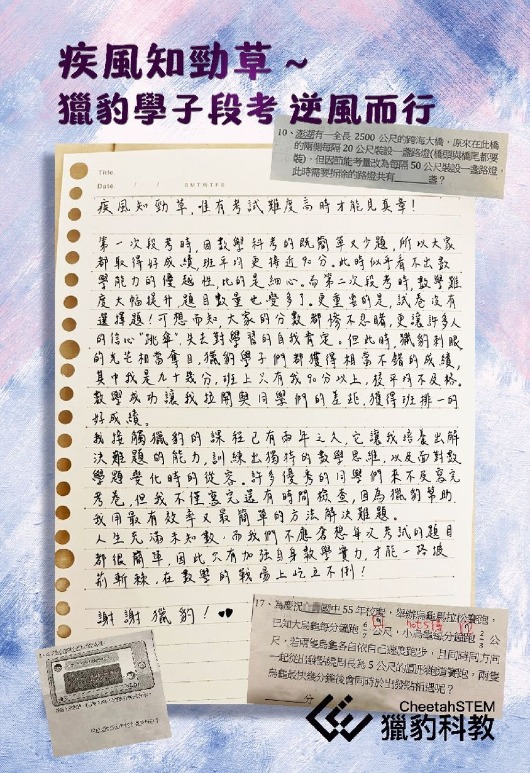 疾風知勁草～
獵豹學子段考 逆風而行
10、澎湖有一全長 2500 公尺的跨海大橋，原來在此橋
的兩側每隔 20 公尺裝設一盞路燈(橋頭與橋尾都要
裝)，但因節能考量改為每隔 50 公尺裝設一盞路燈，
此時需要拆除的路燈共有 盞？
Title.
Date / / S M T W T F S
疾風知勁草，唯有考試難度高時才能見真章！
第一次段考時，因數學科考的既簡單又少題，所以大家
都取得好成績，班平均更接近90分。此時似乎看不出數
學能力的優越性，比的是細心。而第二次段考時，數學難
度大幅提升，題目數量也變多了。更重要的是，試卷沒有
選擇題！可想而知，大家的分數都慘不忍睹，更讓許多人
的信心"跳傘"，失去對學習的自我肯定。但此時，獵豹刺眼
的光芒相當奪目，獵豹學子們都獲得相當不錯的成績，
其中我是九十幾分，班上只有我90分以上，校平均不及格。
數學成功讓我拉開與同學們的差距，獲得班排一的
好成績。
我接觸獵豹的課程已有兩年之久，它讓我培養出解
決難題的能力，訓練出獨特的數學思維，以及面對數
學題變化時的從容。許多優秀的同學們來不及寫完
考卷，但我不僅寫完還有時間檢查，因為獵豹幫助
我用最有效率又最簡單的方法解決難題。
人生充滿未知數，而我們不應奢想每次考試的題目
都很簡單，因此只有加強自身數學實力，才能一路披
荊斬棘，在數學的戰場上屹立不倒！
謝謝獵豹！♥♥
17、為慶祝心書國中 55 年校慶，舉辦烏龜馬拉松賽跑，
已知大烏龜每分鐘跑 公尺，小烏龜每分鐘跑 2/3 公
尺，若兩隻烏龜各自依自己速度跑步，且同時同方向
一起從出發點繞周長為 5 公尺的圓形跑道賽跑，兩隻
烏龜最快幾分鐘後會同時於出發點相遇呢？
分
CheetahSTEM
獵豹科教